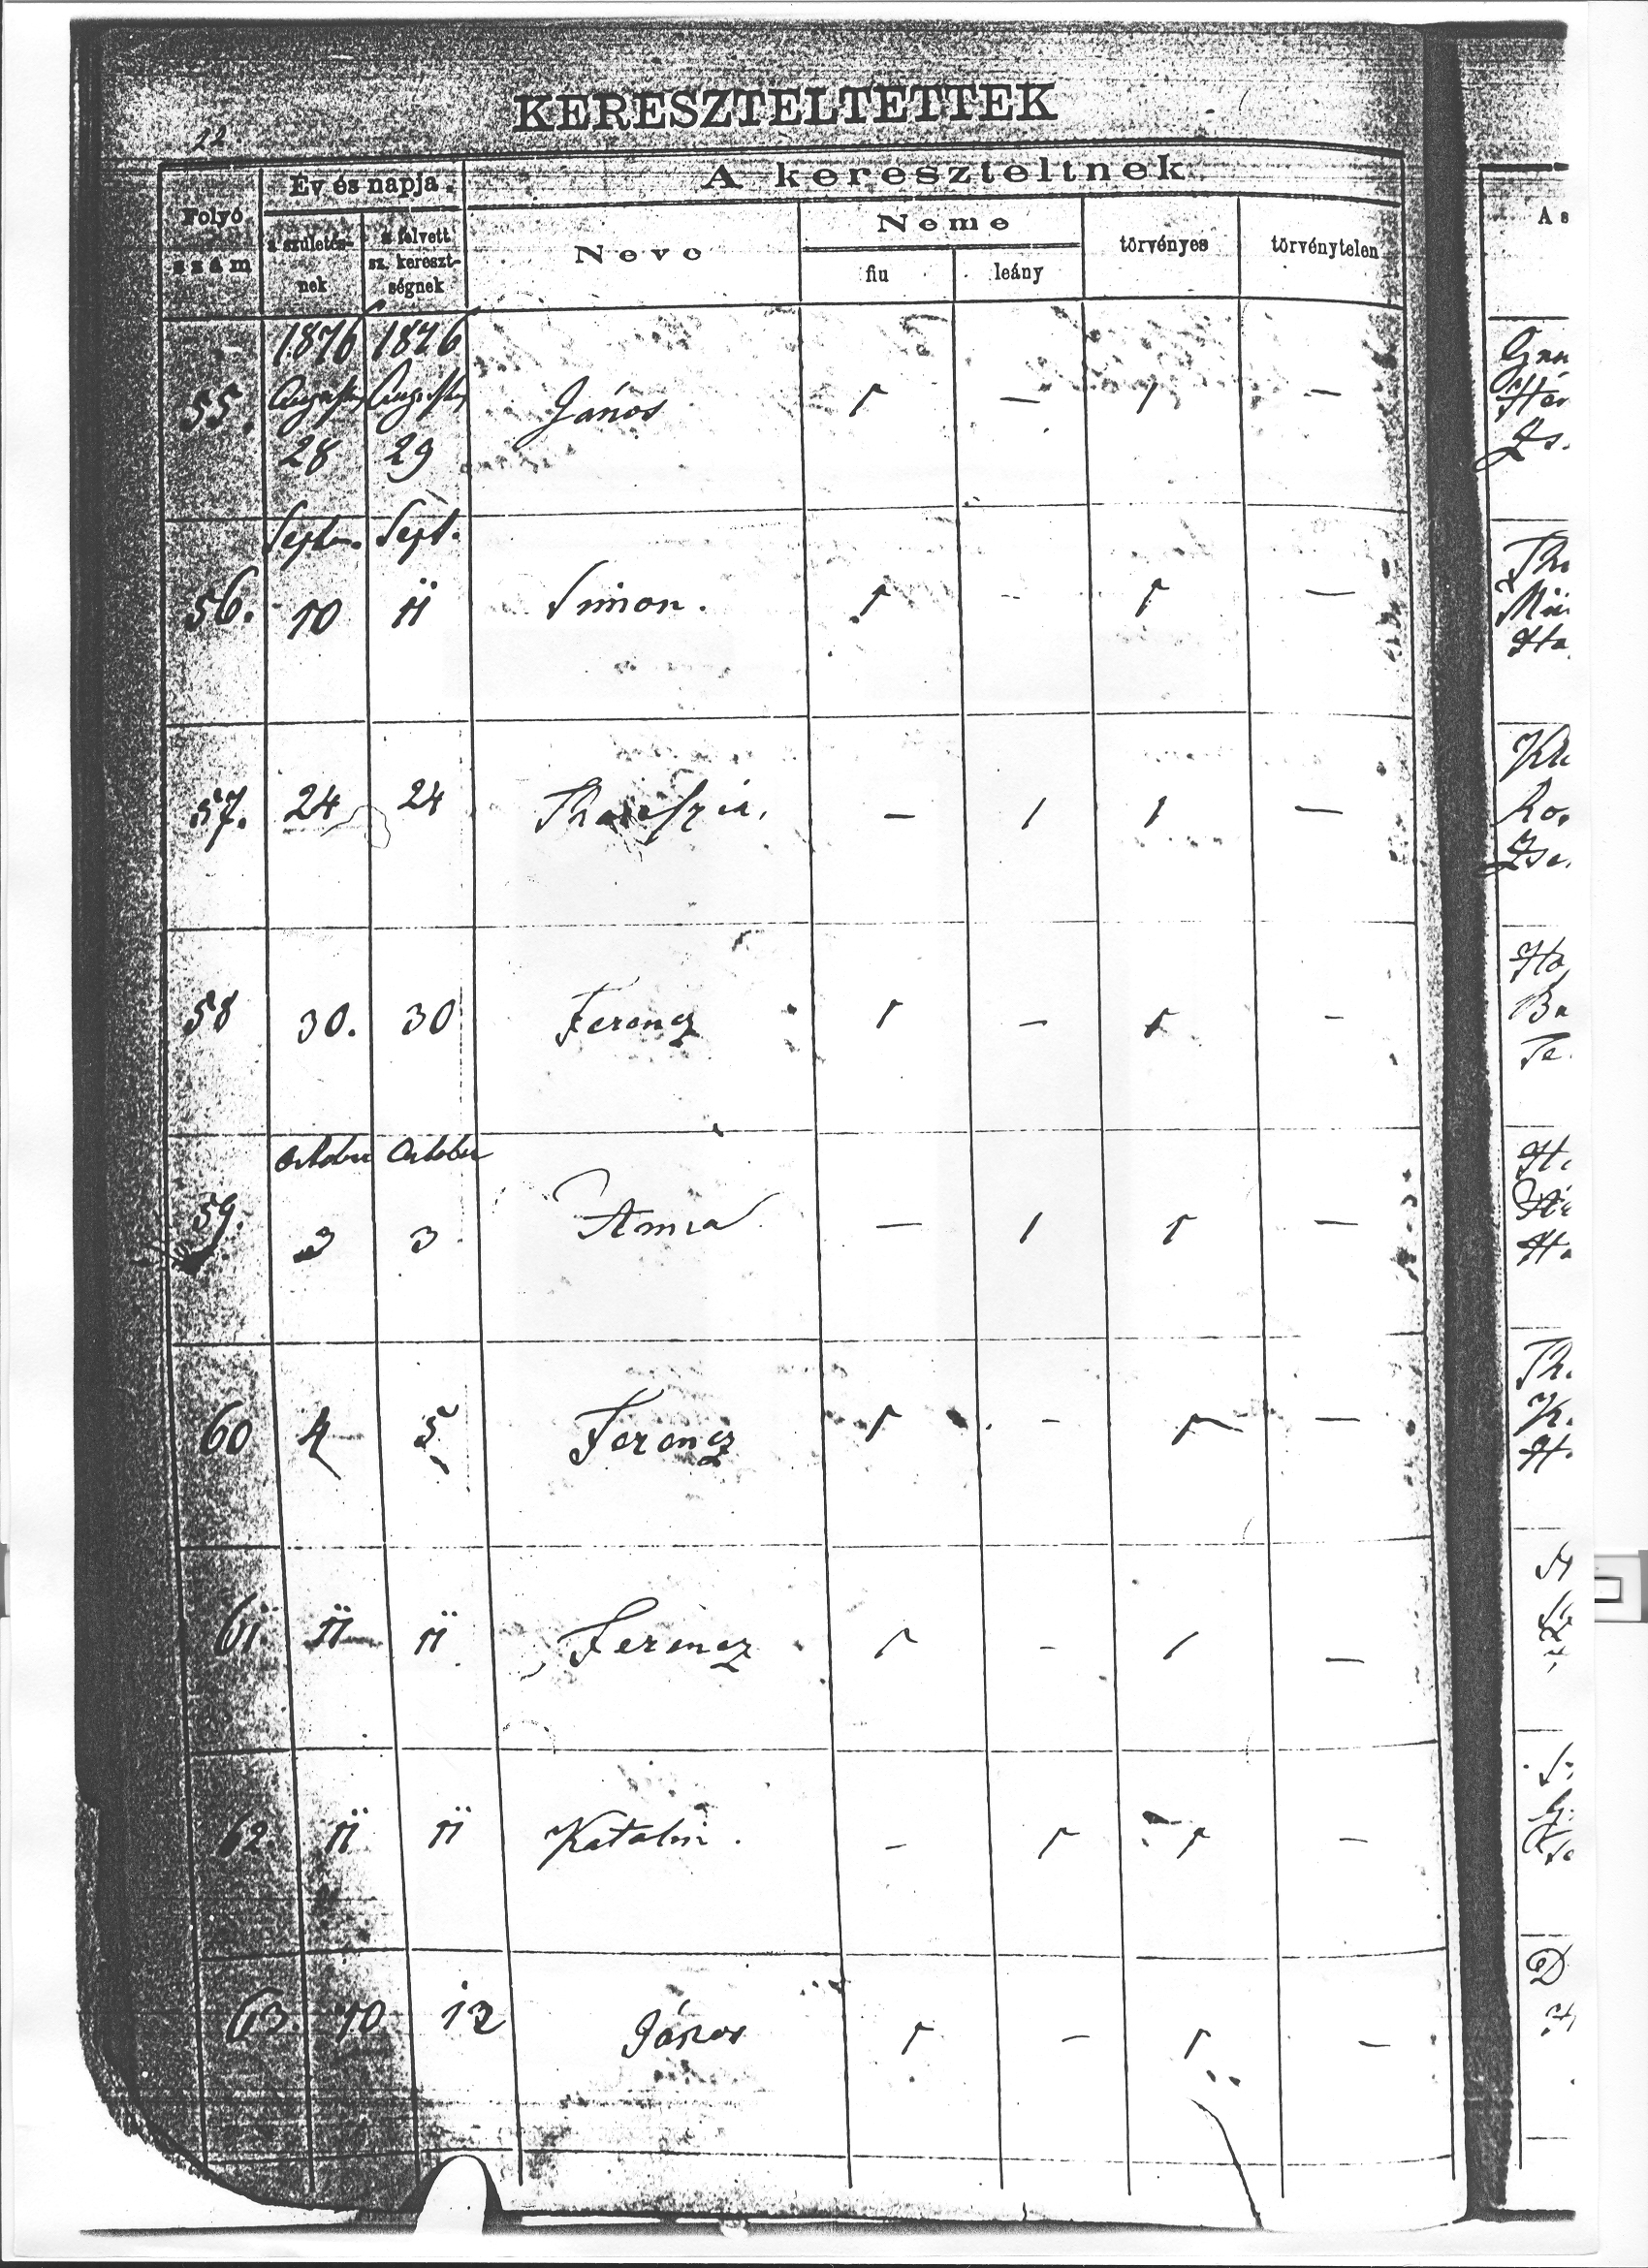 22
KERESZTELTETTEK
Folyó szám
Év és napja
A kereszteltnek
a születésnek
a felvett sz. keresztségnek
Neve
Neme
fiu
leány
törvényes
törvénytelen
A s
1876 1876
55. 28 29 János 1 — 1 —
Septem. Sept.
56. 10 11 Simon. 1 - 1 —
57. 24 24 — 1 1 —
58 30. 30 Ferencz 1 — 1 -
October October
59. 3 3 Anna — 1 1 —
60 4 5 Ferencz 1 - 1 —
61 11 11 Ferencz 1 - 1 —
62. 11 11 Katalin. - 1 1 -
63. 10 12 János 1 - 1 -